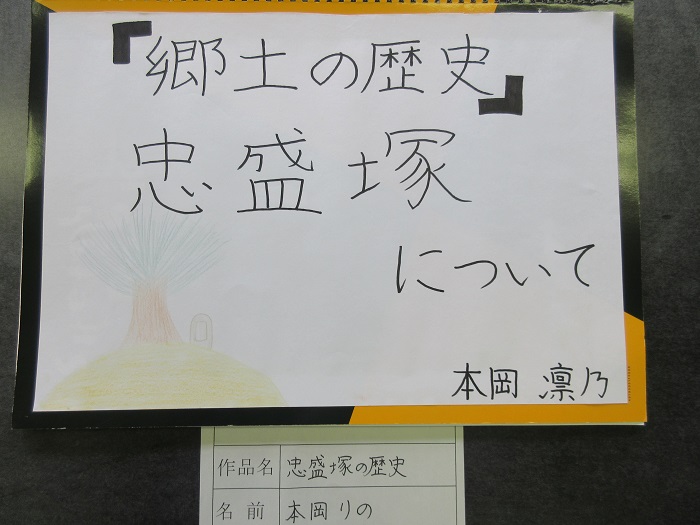 『郷土の歴史』
忠盛塚
について
本岡 凛乃
作品名 忠盛塚の歴史
名前 本岡りの